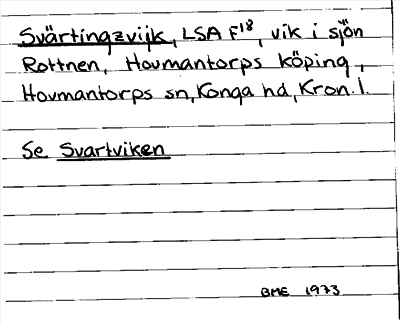 Svärtingzvijk, LSA F18, vik i sjön
Rottnen, Hovmantorps köping,
Hovmantorps sn, Konga hd, Kron. l.
Se Svartviken
BME 1973